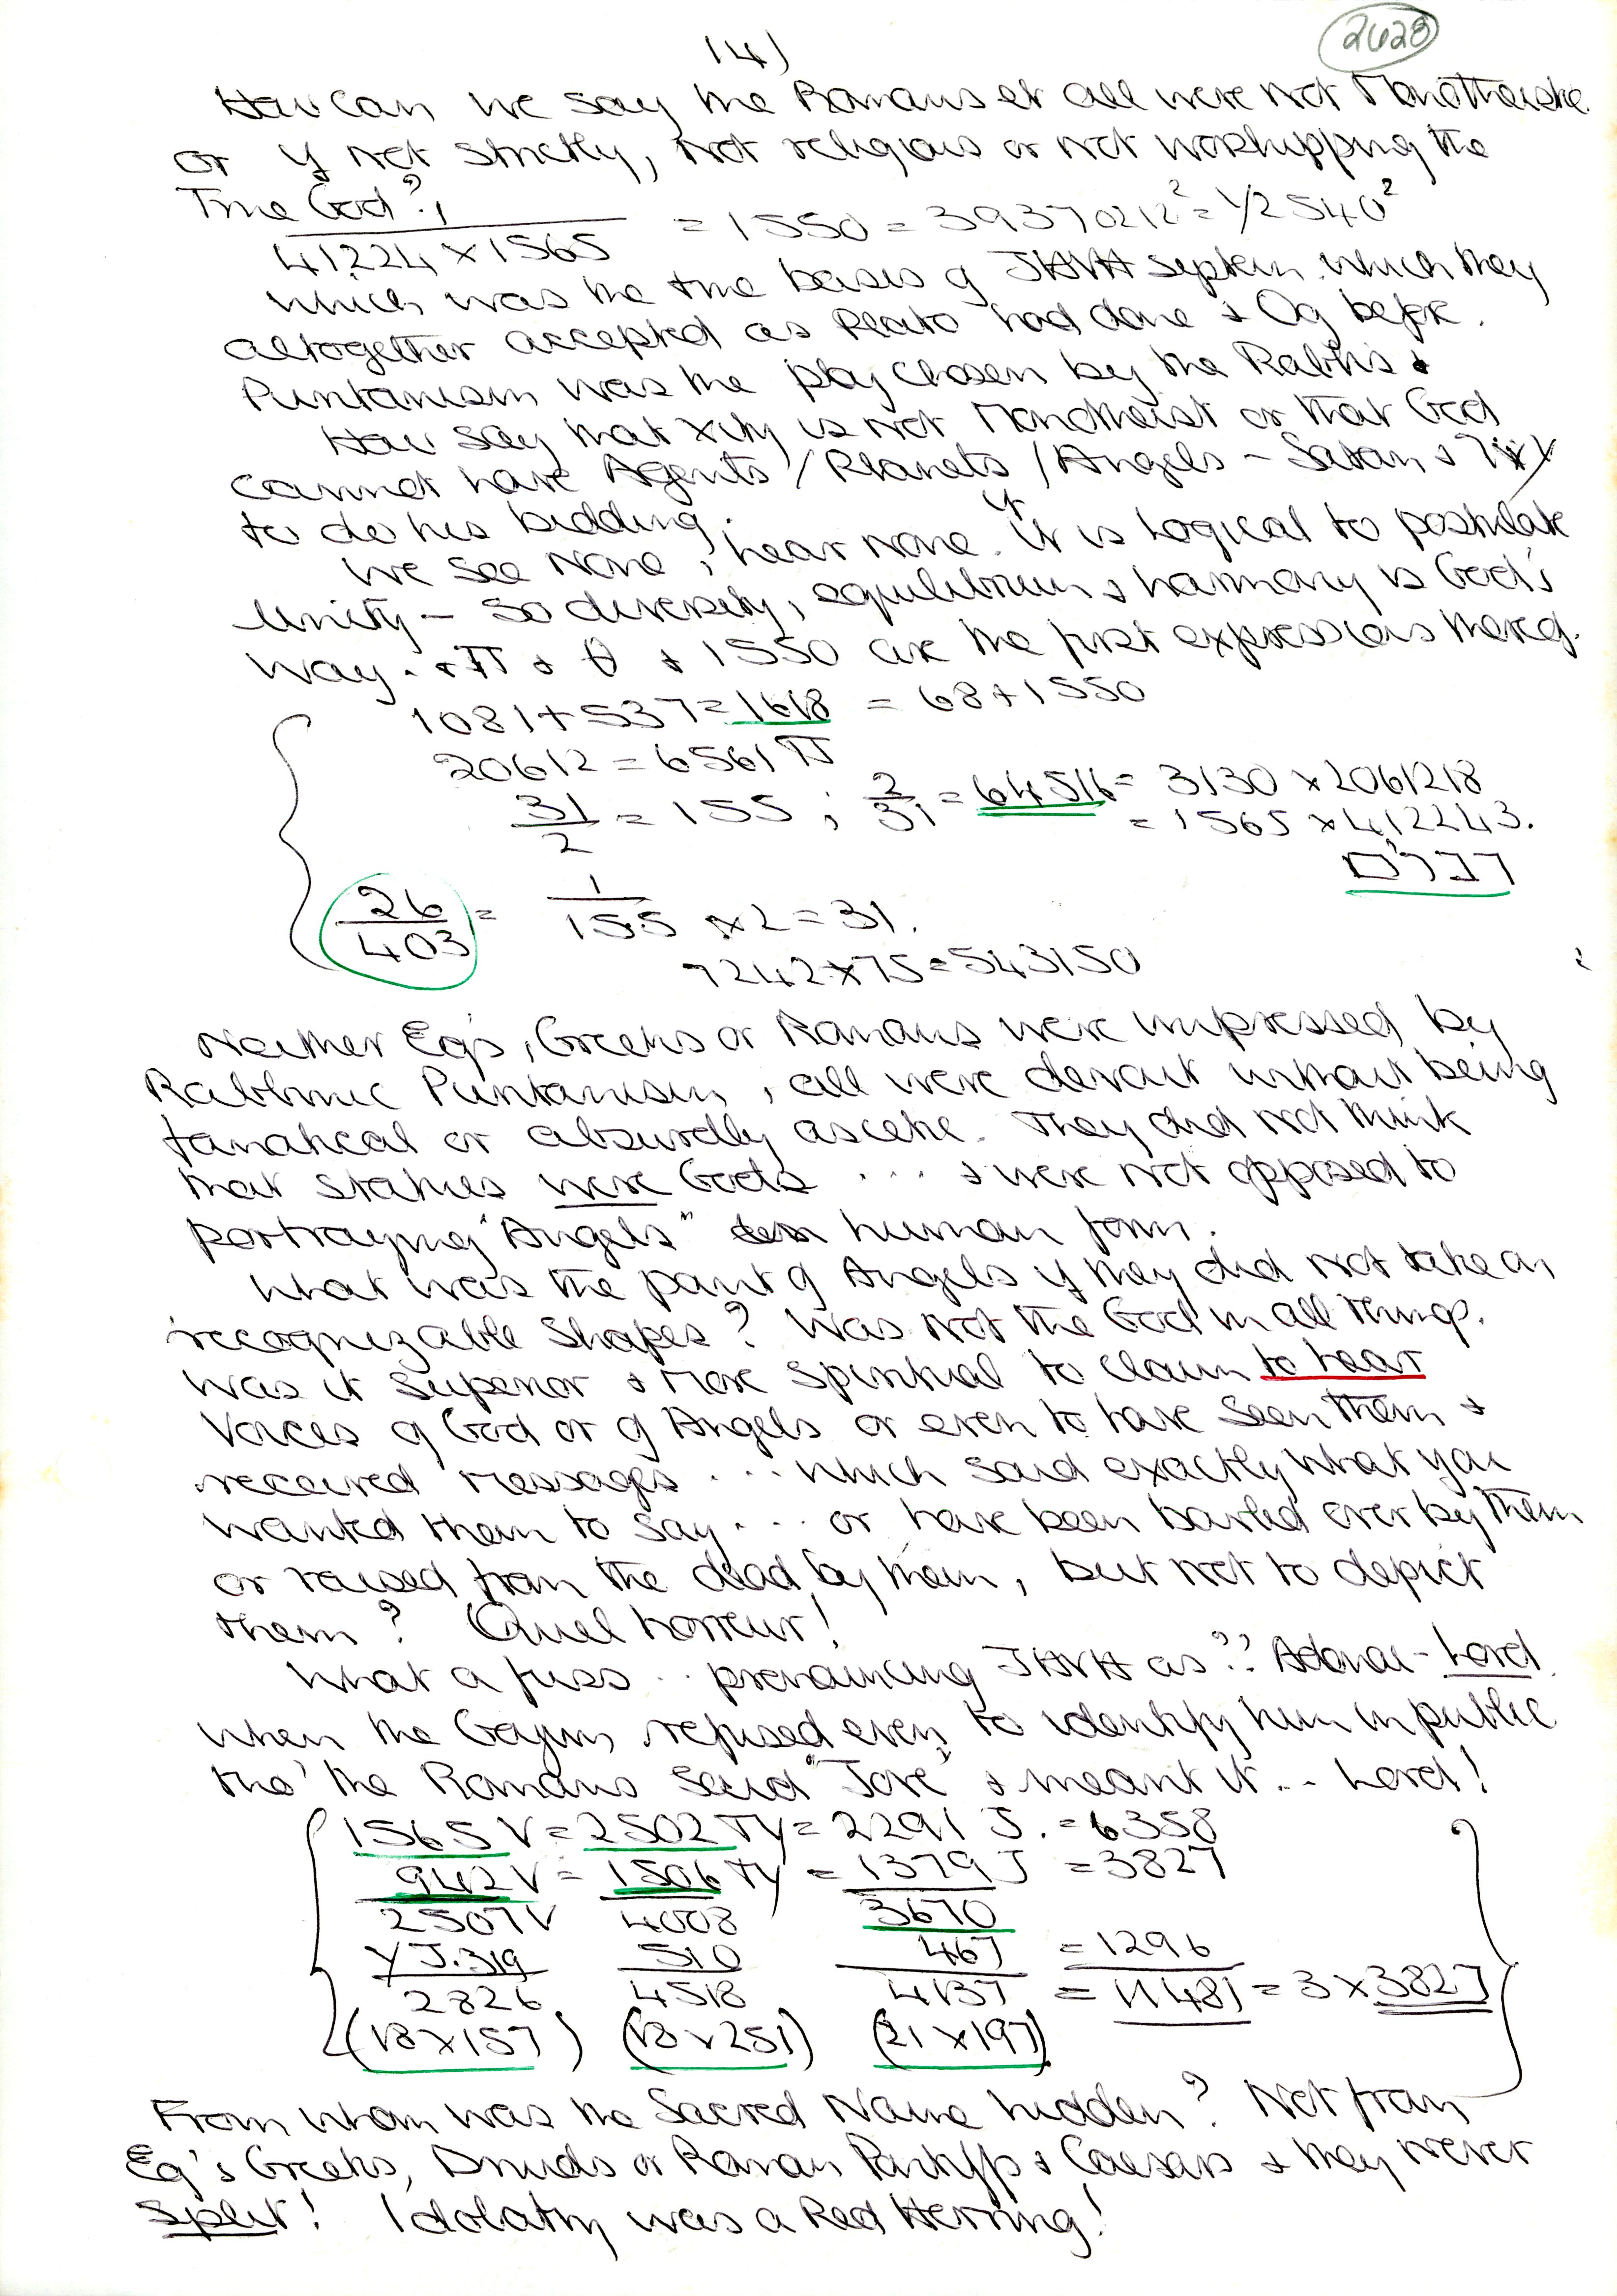 14)
2628
How can we say the Romans et al were not Monotheistic
or if not strictly, not religious or not worshipping the
True God?
1/41224 x 1565 = 1550 = 39370212² = 1/2540²
which was the true basis of JHVH system which they
altogether accepted as Plato had done & Og before.
Puritanism was the ploy chosen by the Rabbis &
How say that Xity is not Monotheist or that God
cannot have Agents / Planets / Angels - Satan &
to do his bidding.
We see None, hear none. It is Logical to postulate
Unity - So diversity, equilibrium & harmony is God's
Way. & π & θ & 1550 are the first expressions thereof.
1081 + 537 = 1618 = 68 + 1550
20612 = 6561 π
31/2 = 155 ; 2/31 = 64516 = 3130 x 2061218
= 1565 x 412243.
26/403 = 1/155 x 2 = 31.
7242 x 75 = 543150
Neither Eg's, Greeks or Romans were impressed by
Rabbinic Puritanism, all were devout without being
fanatical or absurdly ascetic. They did not think
that statues were Gods ... & were not opposed to
portraying "Angels" in human form.
What was the point of Angels if they did not take on
recognizable shapes? Was not the God in all things.
Was it superior & more spiritual to claim to hear
Voices of God or of Angels or even to have seen them &
received messages ... which said exactly what you
wanted them to say ... or have been bowled over by them
or raised from the dead by them, but not to depict
them? Quel horreur!
What a fuss .. pronouncing JHVH as?? Adonai - Lord
when the Goyim refused even to identify him in public
tho' the Romans said "Jove" & meant it .. Lord!
1565 V = 2502 TY = 2291 J. = 6358
942 V = 1506 TY = 1379 J = 3827
2507 V 4008 3670
YJ. 319 510 467 = 1296
2826 4518 4137 = 11481 = 3 x 3827
(18 x 157) (18 x 251) (21 x 197)
From whom was the Sacred Name hidden? Not from
Eg's Greeks, Druids or Roman Pontiffs & Caesars & they never
split! Idolatry was a Red Herring!